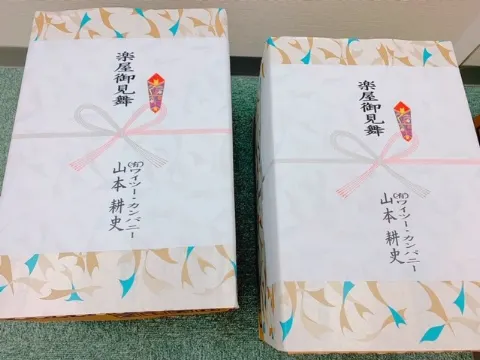 楽屋御見舞
(有)ワイツー・カンパニー
山本耕史
楽屋御見舞
(有)ワイツー・カンパニー
山本耕史